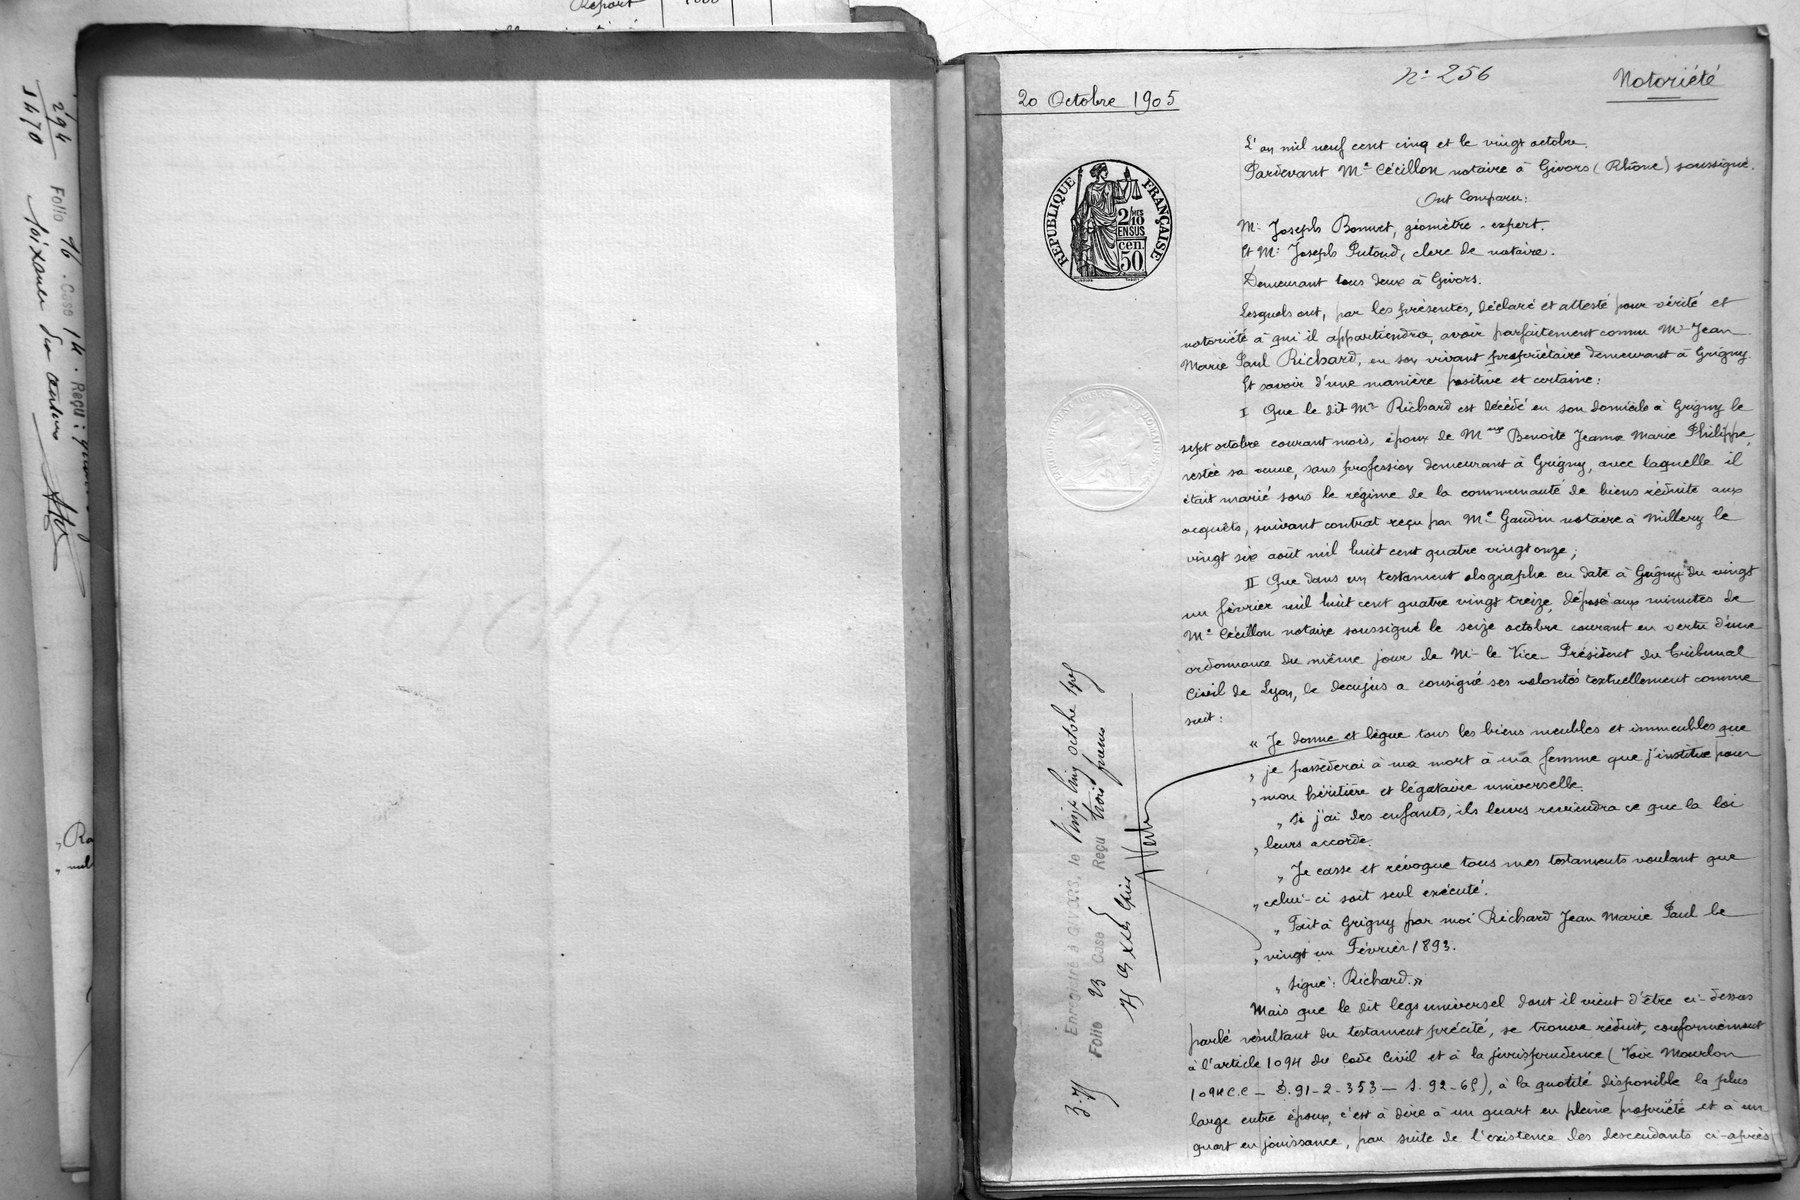 Report 1000
294 Folio 76 Case 14. Reçu :
soixante dix centimes
20 Octobre 1905
N° 256
Notoriété
L'an mil neuf cent cinq et le vingt octobre.
Pardevant Me Cécillon notaire à Givors (Rhône) soussigné.
Ont Comparu:
Mr Joseph Bonnet, géomètre-expert.
Et Mr Joseph Putoud, clerc de notaire.
Demeurant tous deux à Givors.
Lesquels ont, par les présentes, déclaré et attesté pour vérité et
notoriété à qui il appartiendra, avoir parfaitement connu Mr Jean
Marie Paul Richard, en son vivant propriétaire demeurant à Grigny.
Et savoir d'une manière positive et certaine:
I Que le dit Mr Richard est décédé en son domicile à Grigny le
sept octobre courant mois, époux de Mme Benoite Jeanne Marie Philippe,
restée sa veuve, sans profession demeurant à Grigny, avec laquelle il
était marié sous le régime de la communauté de biens réduite aux
acquêts, suivant contrat reçu par Me Gaudin notaire à Millery le
vingt six août mil huit cent quatre vingt onze;
II Que dans un testament olographe en date à Grigny du vingt
un février mil huit cent quatre vingt treize, déposé aux minutes de
Me Cécillon notaire soussigné le seize octobre courant en vertu d'une
ordonnance du même jour de Mr le Vice-Président du Tribunal
Civil de Lyon, le decujus a consigné ses volontés textuellement comme
suit:
« Je donne et lègue tous les biens meubles et immeubles que
" je possèderai à ma mort à ma femme que j'institue pour
" mon héritière et légataire universelle.
" Si j'ai des enfants, ils leurs reviendra ce que la loi
" leurs accorde.
" Je casse et révoque tous mes testaments voulant que
" celui-ci soit seul exécuté.
" Fait à Grigny par moi Richard Jean Marie Paul le
" vingt un Février 1893.
" Signé: Richard. »
Mais que le dit legs universel dont il vient d'être ci-dessus
parlé résultant du testament précité, se trouve réduit, conformément
à l'article 1094 du Code Civil et à la jurisprudence (Voir Mourlon
1094 C.C – D. 91-2-353 – S. 92-65), à la quotité disponible la plus
large entre époux, c'est à dire à un quart en pleine propriété et à un
quart en jouissance, par suite de l'existence des descendants ci-après
RÉPUBLIQUE FRANÇAISE
2/10 EN SUS
50 cen.
Enregistré à GIVORS, le Vingt cinq octobre 1905
Folio 23 Case Reçu trois francs